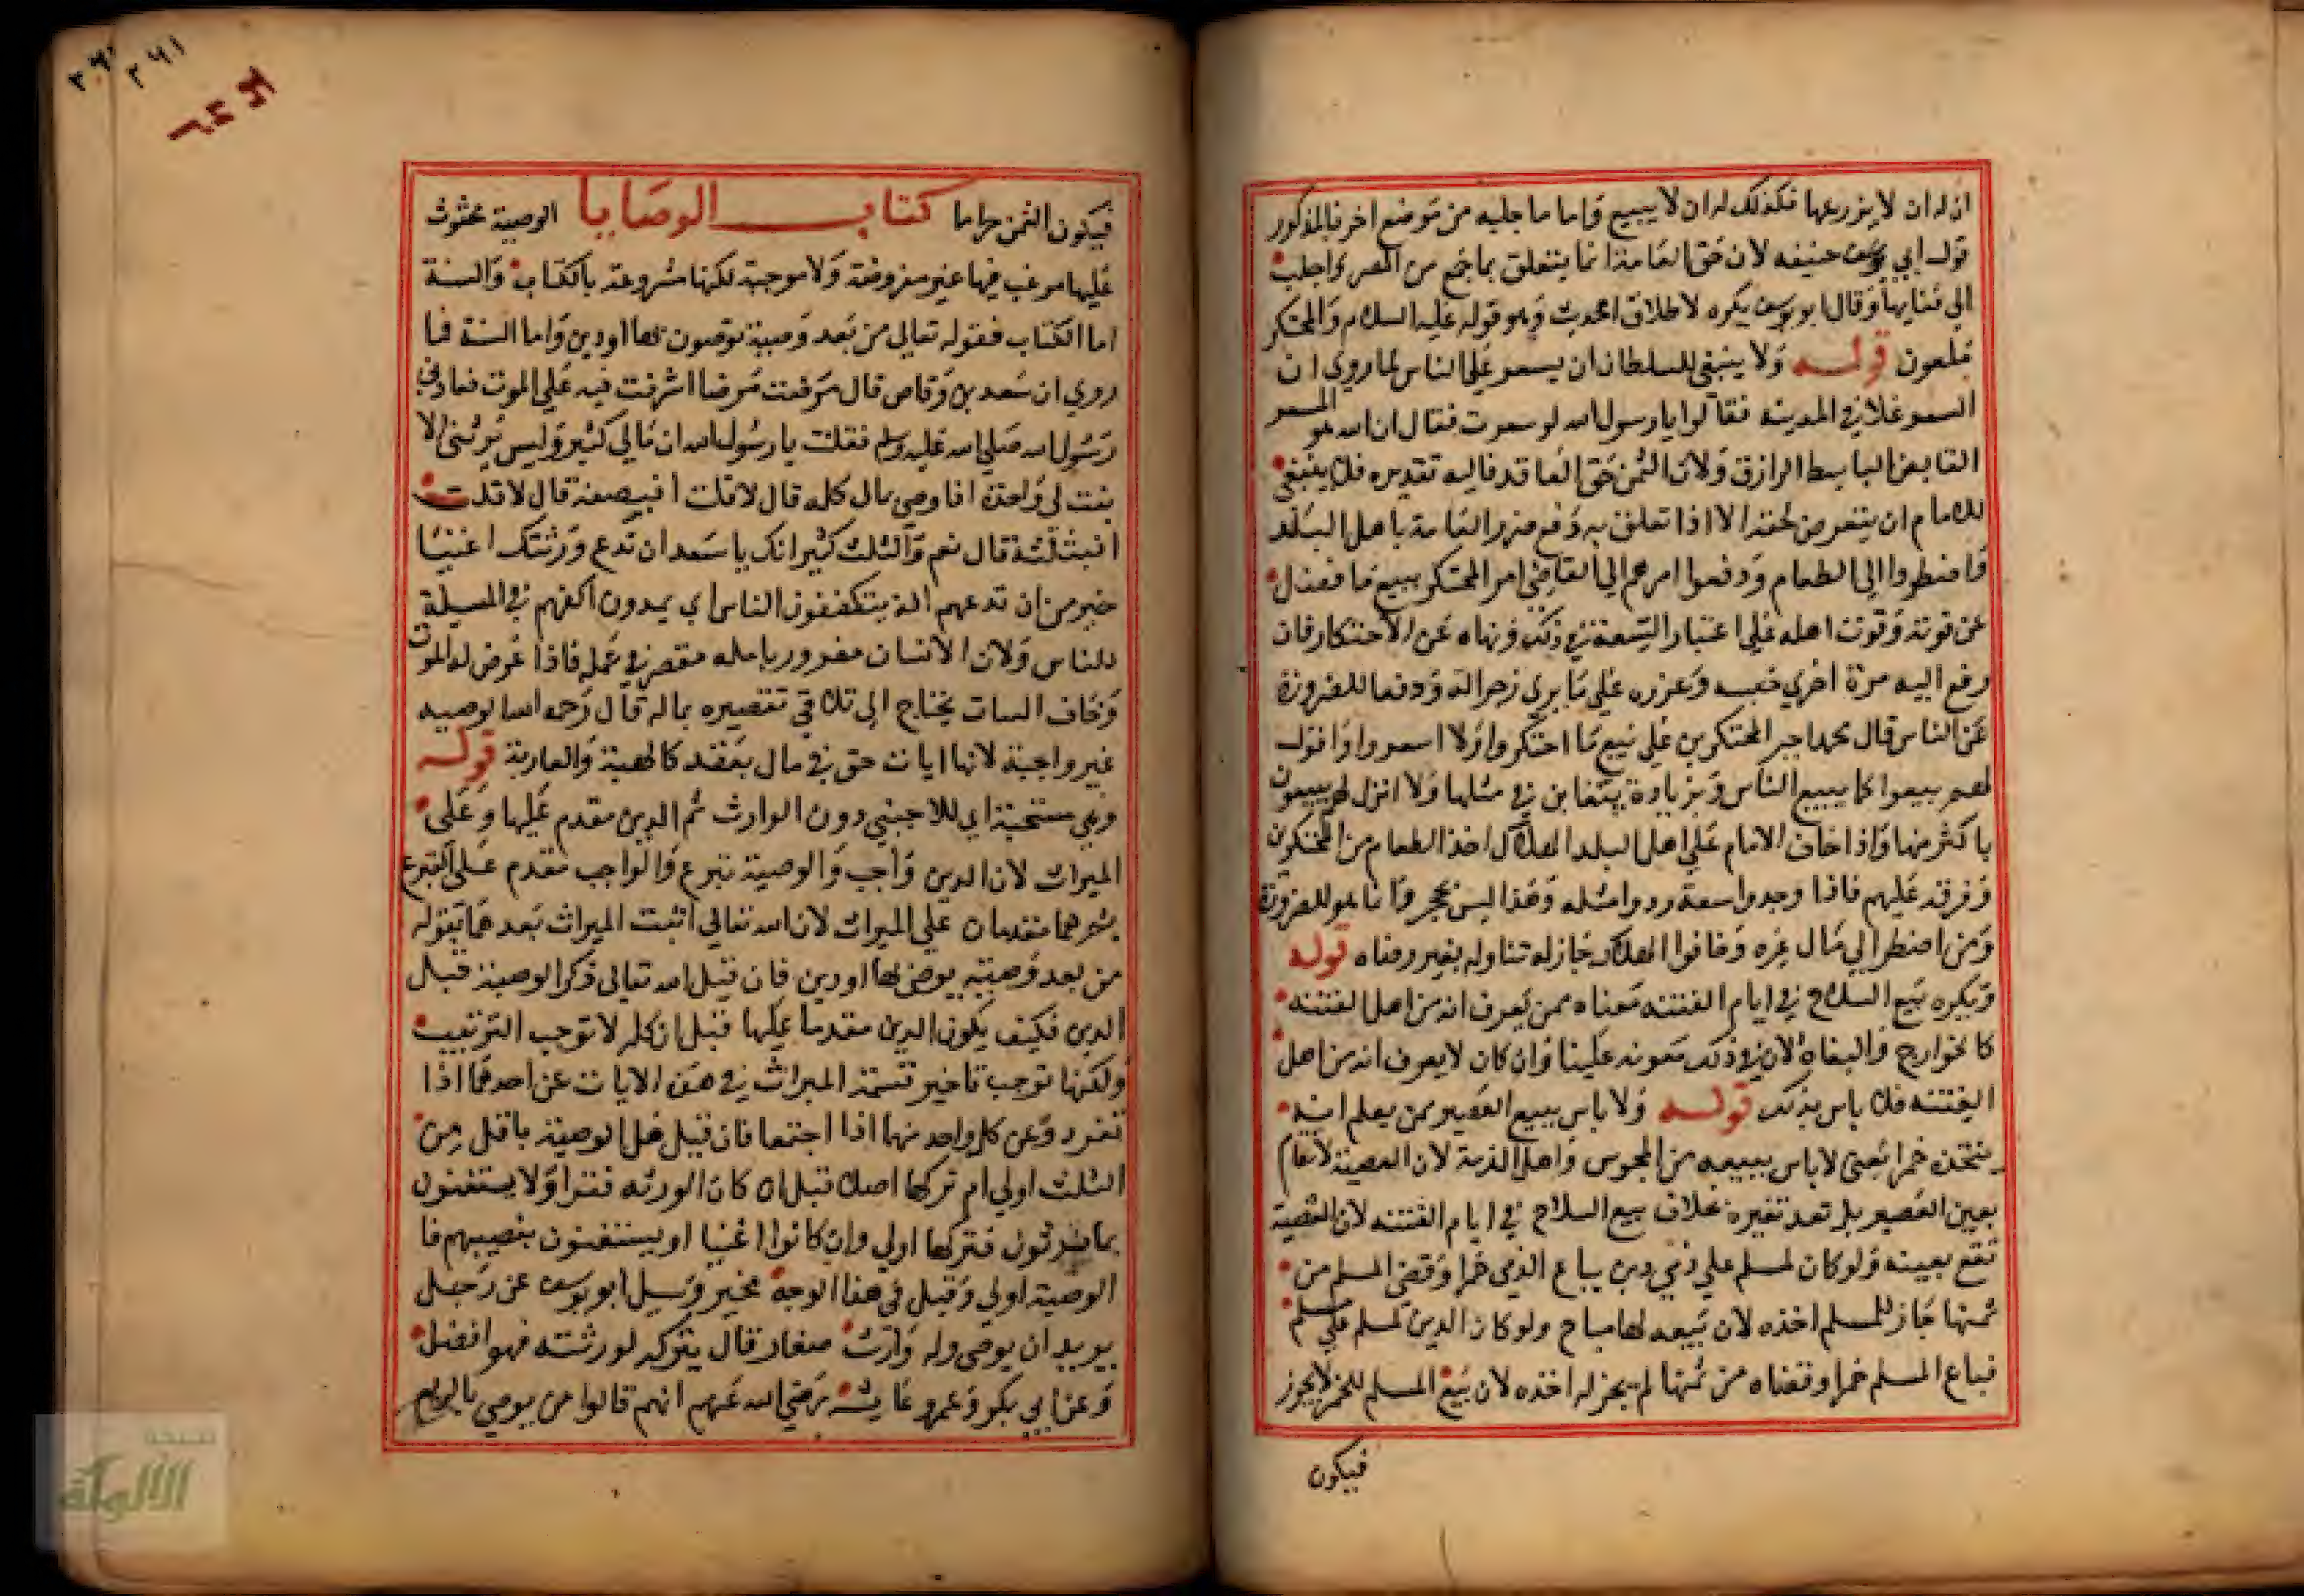 ان له ان لا يزرعها فكذلك له ان لا يبيع واما ما جلبه من موضع اخر فالمذكور
قول ابي حنيفه لان حق العامة انما يتعلق بما جمع من المصر واجلب
الى فنايها وقال ابو يوسف يكره لاطلاق الحديث وهو قوله عليه السلام والمحتكر
ملعون قوله ولا ينبغي للسلطان ان يسعر على الناس لما روي ان
السعر غلا في المدينه فقالوا يا رسول الله لو سعرت فقال ان الله هو المسعر
القابض الباسط الرازق ولان الثمن حق العاقد فاليه تقديره فلا ينبغي
للامام ان يتعرض لحقه الا اذا تعلق به دفع ضرر العامة باهل البلد
فاضطروا الى الطعام ودفعوا امرهم الى القاضي امر المحتكر ببيع ما فضل
عن قوته وقوت اهله على اعتبار السعة في ذلك ونهاه عن الاحتكار فان
رفع اليه مرة اخرى حبسه وعزره على ما يرى زجرا له ودفعا للضرورة
عن الناس قال محمد اجبر المحتكرين على بيع ما احتكروا ولا اسعر واقول
لهم بيعوا كما يبيع الناس وبزيادة يتغابن في مثلها ولا اتركهم يبيعون
باكثر منها واذا خاف الامام على اهل البلد الهلاك اخذ الطعام من المحتكرين
وفرقه عليهم فاذا وجدوا سعة ردوا مثله وهذا ليس بحجر وانما هو للضرورة
ومن اضطر الى مال غيره وخافوا الهلاك جاز له تناوله بغير رضاه قوله
ويكره بيع السلاح في ايام الفتنه معناه ممن يعرف انه من اهل الفتنه
كالخوارج والبغاة لان في ذلك معونه علينا وان كان لا يعرف انه من اهل
الفتنه فلا باس بذلك قوله ولا باس ببيع العصير ممن يعلم انه
يتخذه خمرا يعني لا باس ببيعه من المجوس واهل الذمة لان المعصية لا تقام
بعين العصير بل بعد تغيره بخلاف بيع السلاح في ايام الفتنه لان المعصية
تقع بعينه ولو كان لمسلم على ذمي دين فباع الذمي خمرا وقضى المسلم من
ثمنها جاز للمسلم اخذه لان بيعه لها مباح ولو كان الدين لمسلم على مسلم
فباع المسلم خمرا وقضاه من ثمنها لم يجز له اخذه لان بيع المسلم للخمر لا يجوز
فيكون
٢٦١
٢٦١
فيكون الثمن حراما كتاب الوصايا الوصية محثوث
عليها مرغب فيها غير مفروضة ولا موجبة لكنها مشروعة بالكتاب والسنة
اما الكتاب فقوله تعالى من بعد وصية توصون بها او دين واما السنة فما
روي ان سعد بن وقاص قال مرضت مرضا اشرفت فيه على الموت فعادني
رسول الله صلى الله عليه وسلم فقلت يا رسول الله ان مالي كثير وليس يرثني الا
بنت لي واحدة افاوصي بمال كله قال لا قلت افبنصفه قال لا قلت
افبثلثه قال نعم والثلث كثير انك يا سعد ان تدع ورثتك اغنيا
خير من ان تدعهم يتكففون الناس اي يمدون اكفهم في المسيلة
للناس ولان الانسان مغرور بامله مقصر في عمله فاذا عرض له الموت
وخاف البيات يحتاج الى تلافي تقصيره بماله قال رحمه الله الوصيه
غير واجبة لانها اثبات حق في مال بعقد كالهبة والعارية قوله
وهي مستحبة اي للاجنبي دون الوارث ثم الدين مقدم عليها وعلى
الميراث لان الدين واجب والوصية تبرع والواجب مقدم على التبرع
ثم هما مقدمان على الميراث لان الله تعالى اثبت الميراث بعدهما بقوله
من بعد وصية يوصى بها او دين فان قيل الله تعالى ذكر الوصية قبل
الدين فكيف يكون الدين مقدما عليها قيل ان كلمة لا توجب الترتيب
ولكنها توجب تاخير قسمة الميراث في هذه الايات عن احدهما اذا
تفرد وعن كل واحد منهما اذا اجتمعا فان قيل هل الوصية باقل من
الثلث اولى ام تركها اصلا قيل ان كان الورثه فقرا ولا يستغنون
بما يرثون فتركها اولى وان كانوا اغنيا او يستغنون بنصيبهم فا
الوصية اولى وقيل في هذا الوجه مخير وسيل ابو يوسف عن رجل
يريد ان يوصي وله وارث صغار قال يتركه لورثته فهو افضل
وعن ابي بكر وعمر وعايشه رضي الله عنهم انهم قالوا من يوصي
الألوكة